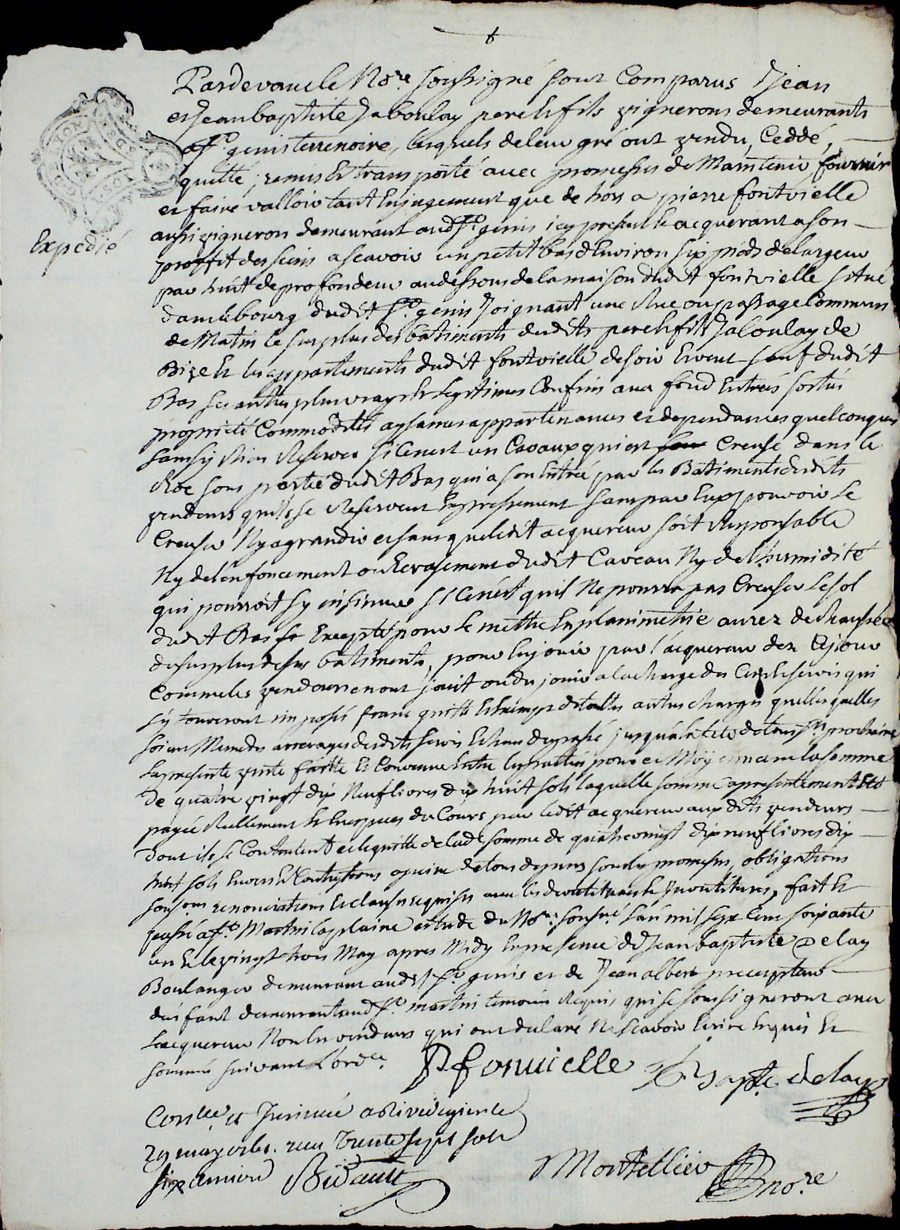 Pardevant le No.re soussigné sont Comparus Jean
et Jean baptiste Jaboulay pere et fils vignerons demeurants
a s.t genis terrenoire, lesquels de leur gré ont vendu, Ceddé,
quitté, remis et transporté avec promesses de Maintenir fournir
et faire valloir tant En jugement que de hors a pierre fontvielle
aussi vigneron demeurant aud. s.t genis icy present et acquerant a son
proffit des siens ascavoir un petit bas d'Environ six pieds de largeur
par huit de profondeur au dessous de la maison dudit fontvielle situé
dans le bourg dudit s.t genis Joignant une Rue ou passage Commun
de Matin le surplus des batiments desdits pere et fils Jaboulay de
Bize et les appartements dudit fontvielle de soir Et vent sauf dudit
Bas ses autres plus vrays et legitimes Confins avec fond Entrées sorties
propriété Commodités aysances appartenances et dependances quelconques
sans sy Rien Reserver si Cenest un Caveau qui est Creusé dans le
Roc sous partie dudit Bas qui a son Entrée par les Batiments desdits
vendeurs quils se Reservent Expressement sans par Eux pouvoir le
Creuser Ny agrandir et sans que ledit acquereur soit Responsable
Ny de lenfoncement ou Ecrasement dudit Caveau Ny de l'humidité
qui pourroit sy insinuer si Cenest quil Ne pourra pas Creuser le sol
dudit Bas Excepté pour le mettre En planimetrie au rez de chaussée
du surplus de ses batiments, pour En jouir par l'acquereur des Ce jour
Comme les vendeurs en ont jouit ou du jouir a la charge des Cens et servis qui
sy trouveront imposés franc quitte Et exempt de touttes autres charges quelles quelles
soient Meme des arrerages desdits servis Echeus du passé jusqua la fete de tous s.ts prochaine
La presente vente faitte Et Convenue Entre les parties pour et Moyennant la somme
De quatre vingt dix Neuf livres dix huit sols laquelle somme a presentement Eté
payée Reellement Et En especes du Cours par ledit acquereur auxdits vendeurs
Dont ils se Contentent et le quitte de lade somme de quatre vingt dix neuf livres dix
huit sols par promesses, obligations
soumissions renonciations Et clauses requises fait Et
passé a s.t Martin la plaine etude du No.re soussig.né l'an mil sept Cent soixante
un Et le vingt trois May apres Midy En presence de Jean baptiste Delay
Boulanger demeurant audit s.t genis et de Jean albert precepteur
denfant demeurant aud. s.t martin temoins Requis qui se soussigneront avec
Lacquereur Non les vendeurs qui ont declaré Ne scavoir Ecrire Enquis Et
sommés suivant l'ord.ce
Expedié
P fonvielle
J Bapte. delay
Con.lle et Insinué a Rivedegier le
29 may 1761. recu trente sept sols
six deniers Bidault
Montellier no.re